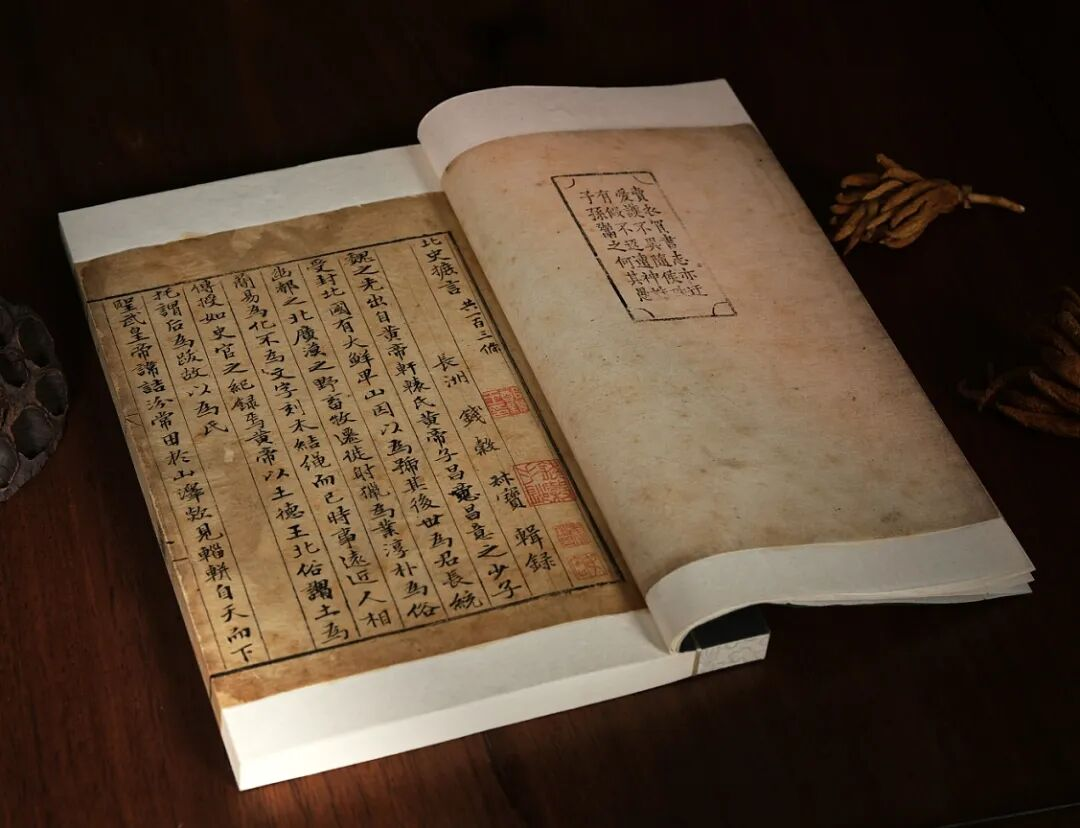 賣衣買書志亦迂
愛護不異隨侯珠
有假不返遭神誅
子孫鬻之何其愚
北史摭言 共一百三條
長洲 錢穀 叔寶 輯録
魏之先出自黃帝軒轅氏黃帝子昌意昌意之少子
受封北國有大鮮卑山因以為號其後世為君長統
幽都之北廣漠之野畜牧遷徙射獵為業淳朴為俗
簡易為化不為文字刻木結繩而已時事遠近人相
傳授如史官之紀録焉黃帝以土德王北俗謂土為
托謂后為跋故以為氏
聖武皇帝諱詰汾常田於山澤欻見輜軿自天而下